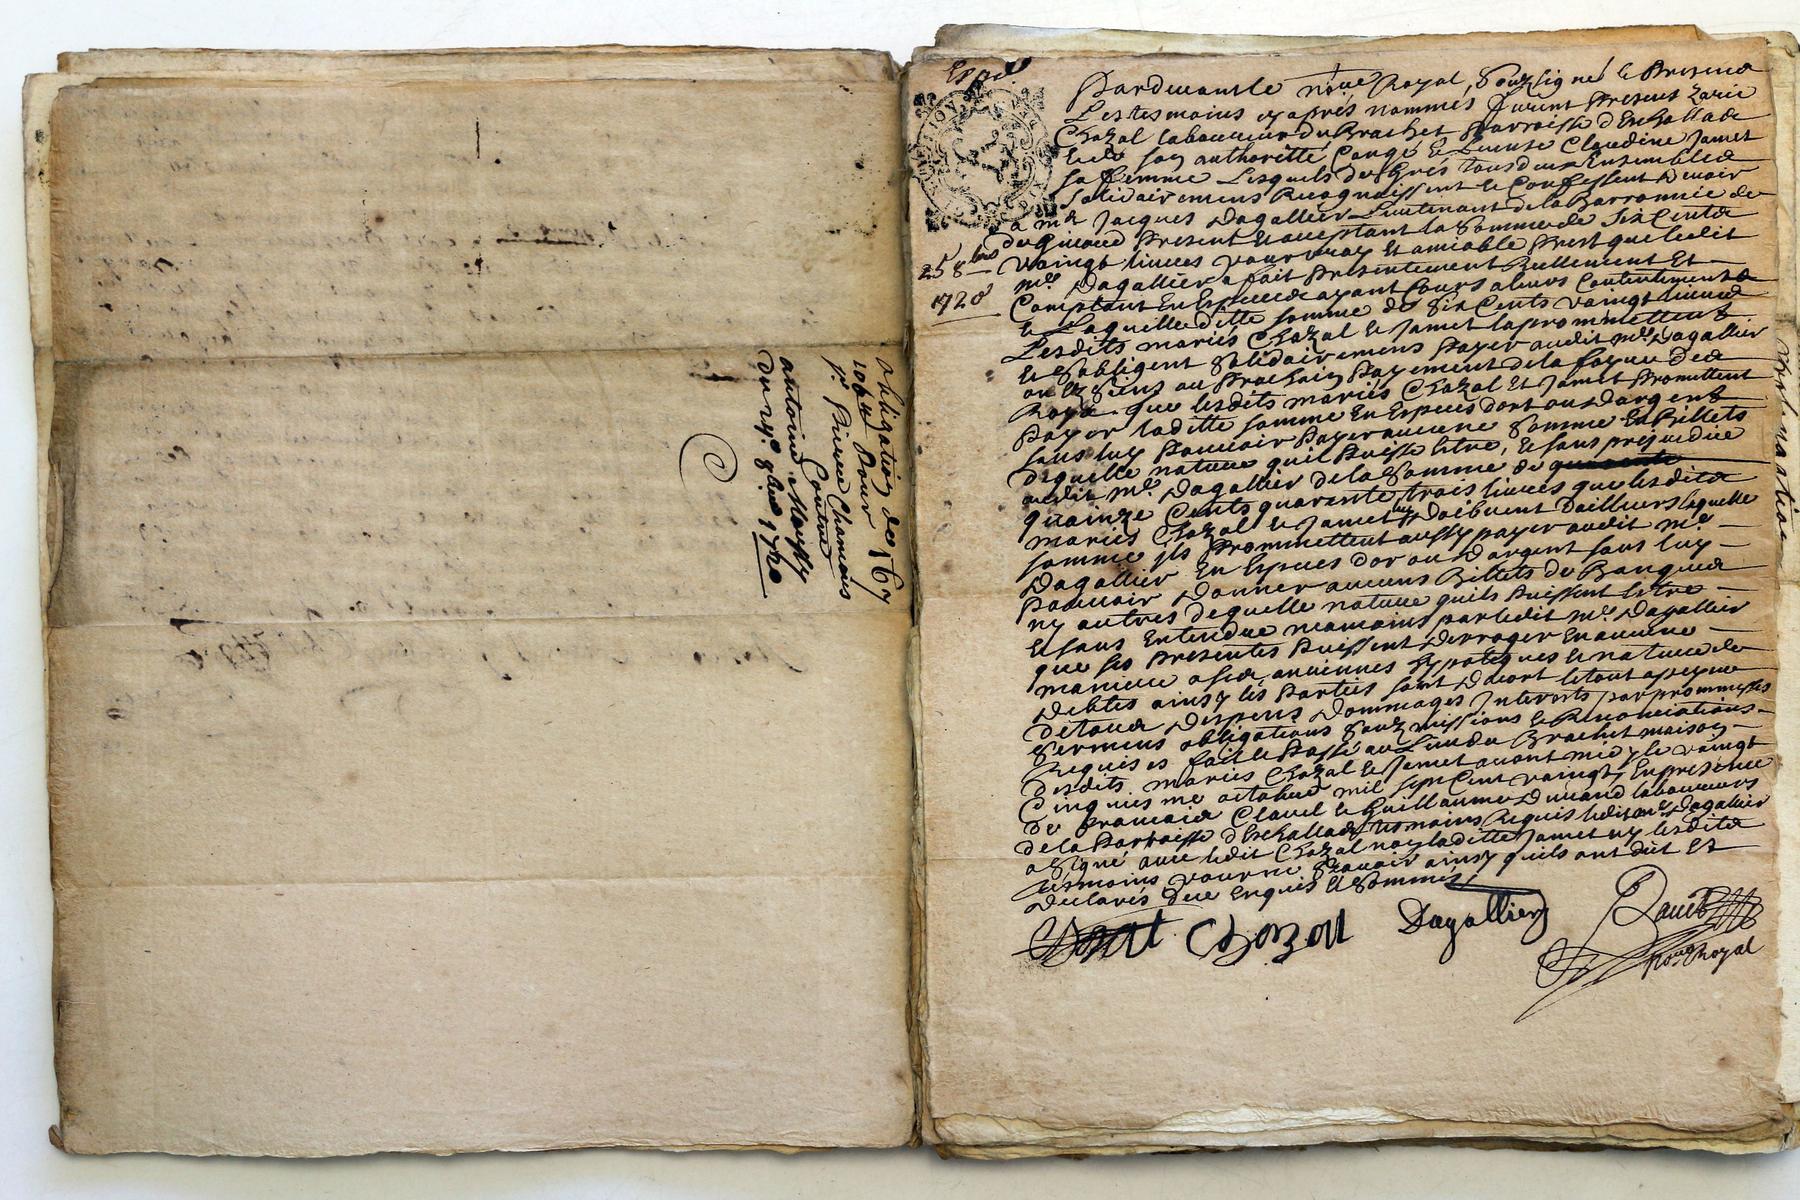 obligation de
106 ₶ pour
Sr. Pierre Chamois
Contre
antoine Mouffy
du 24e. 8bre 1720
167
258
1720
Pardevant le nore Royal, Soubsigné le Presence
Les tesmoins cy aprés nommés furent Present
Chazal laboureur du Brachet Parroisse d'Eschallad
de son authoritté Congé et Licence Claudine Jamet
sa femme Lesquels de Grés tous deux Ensemble
Solidairement Recognoissent et Confessent Devoir
a mr Jacques Dagallier Lieutenant de la Barronnie de
Present et acceptant la Somme de Six Cents
Vaingt livres pour vray et amiable Prest que ledit
mre Dagallier a fait Presentement Reellement Et
Comptant En Especes ayant Cours a leurs Contentement
Laquelle ditte somme de Six Cents vaingt livres
Lesdits mariés Chazal et Jamet la prommettent
et S'obligent Solidairement Payer audit mre Dagallier
ou es Siens au Prochain Payement de la foyre des
Roys que lesdits mariés Chazal et Jamet Promettent
Payer laditte somme En Especes d'or ou d'argent
sans luy Pouvoir Payer aucune Somme En Billets
dequelle nature quil Puisse Estre, et sans prejudice
audit mre Dagallier de la Somme de
quainze Cents quarante trois livres que lesdits
mariés Chazal et Jamet luy Doibvent Dailleurs laquelle
somme ils Prommettent aussy payer audit mre
Dagallier En Especes d'or ou d'argent sans luy
Pouvoir Donner aucuns Billets de Banque
ny autres dequelle nature quils Puissent Estre
Et sans Entendre neamoins par ledit mre Dagallier
que ses Presentes Puissent Derroger En aucune
maniere a ses anciennes hypoteques et nature de
Debtes ainsy les Parties sont D'acort le tout a peyne
de tous Despens Dommages Interests par prommesses
Serment obligations Soubzmissions et Renonciations
Requises fait et Passé au Lieu du Brachet maison
desdits mariés Chazal et Jamet avant midy le vaingt
Cinquieme octobre mil sept Cent vaingt, En presence
de François Clavel et Guillaume Durand laboureurs
de la Parroisse d'Eschallad tesmoins Requis ledit mre Dagallier
a Signé avec ledit Chazal non laditte Jamet ny lesdits
tesmoins pour ne Sçavoir ainsy quils ont dit Et
Declarés Deue Enquis et Sommés
Chazall Dagallier
nore Royal